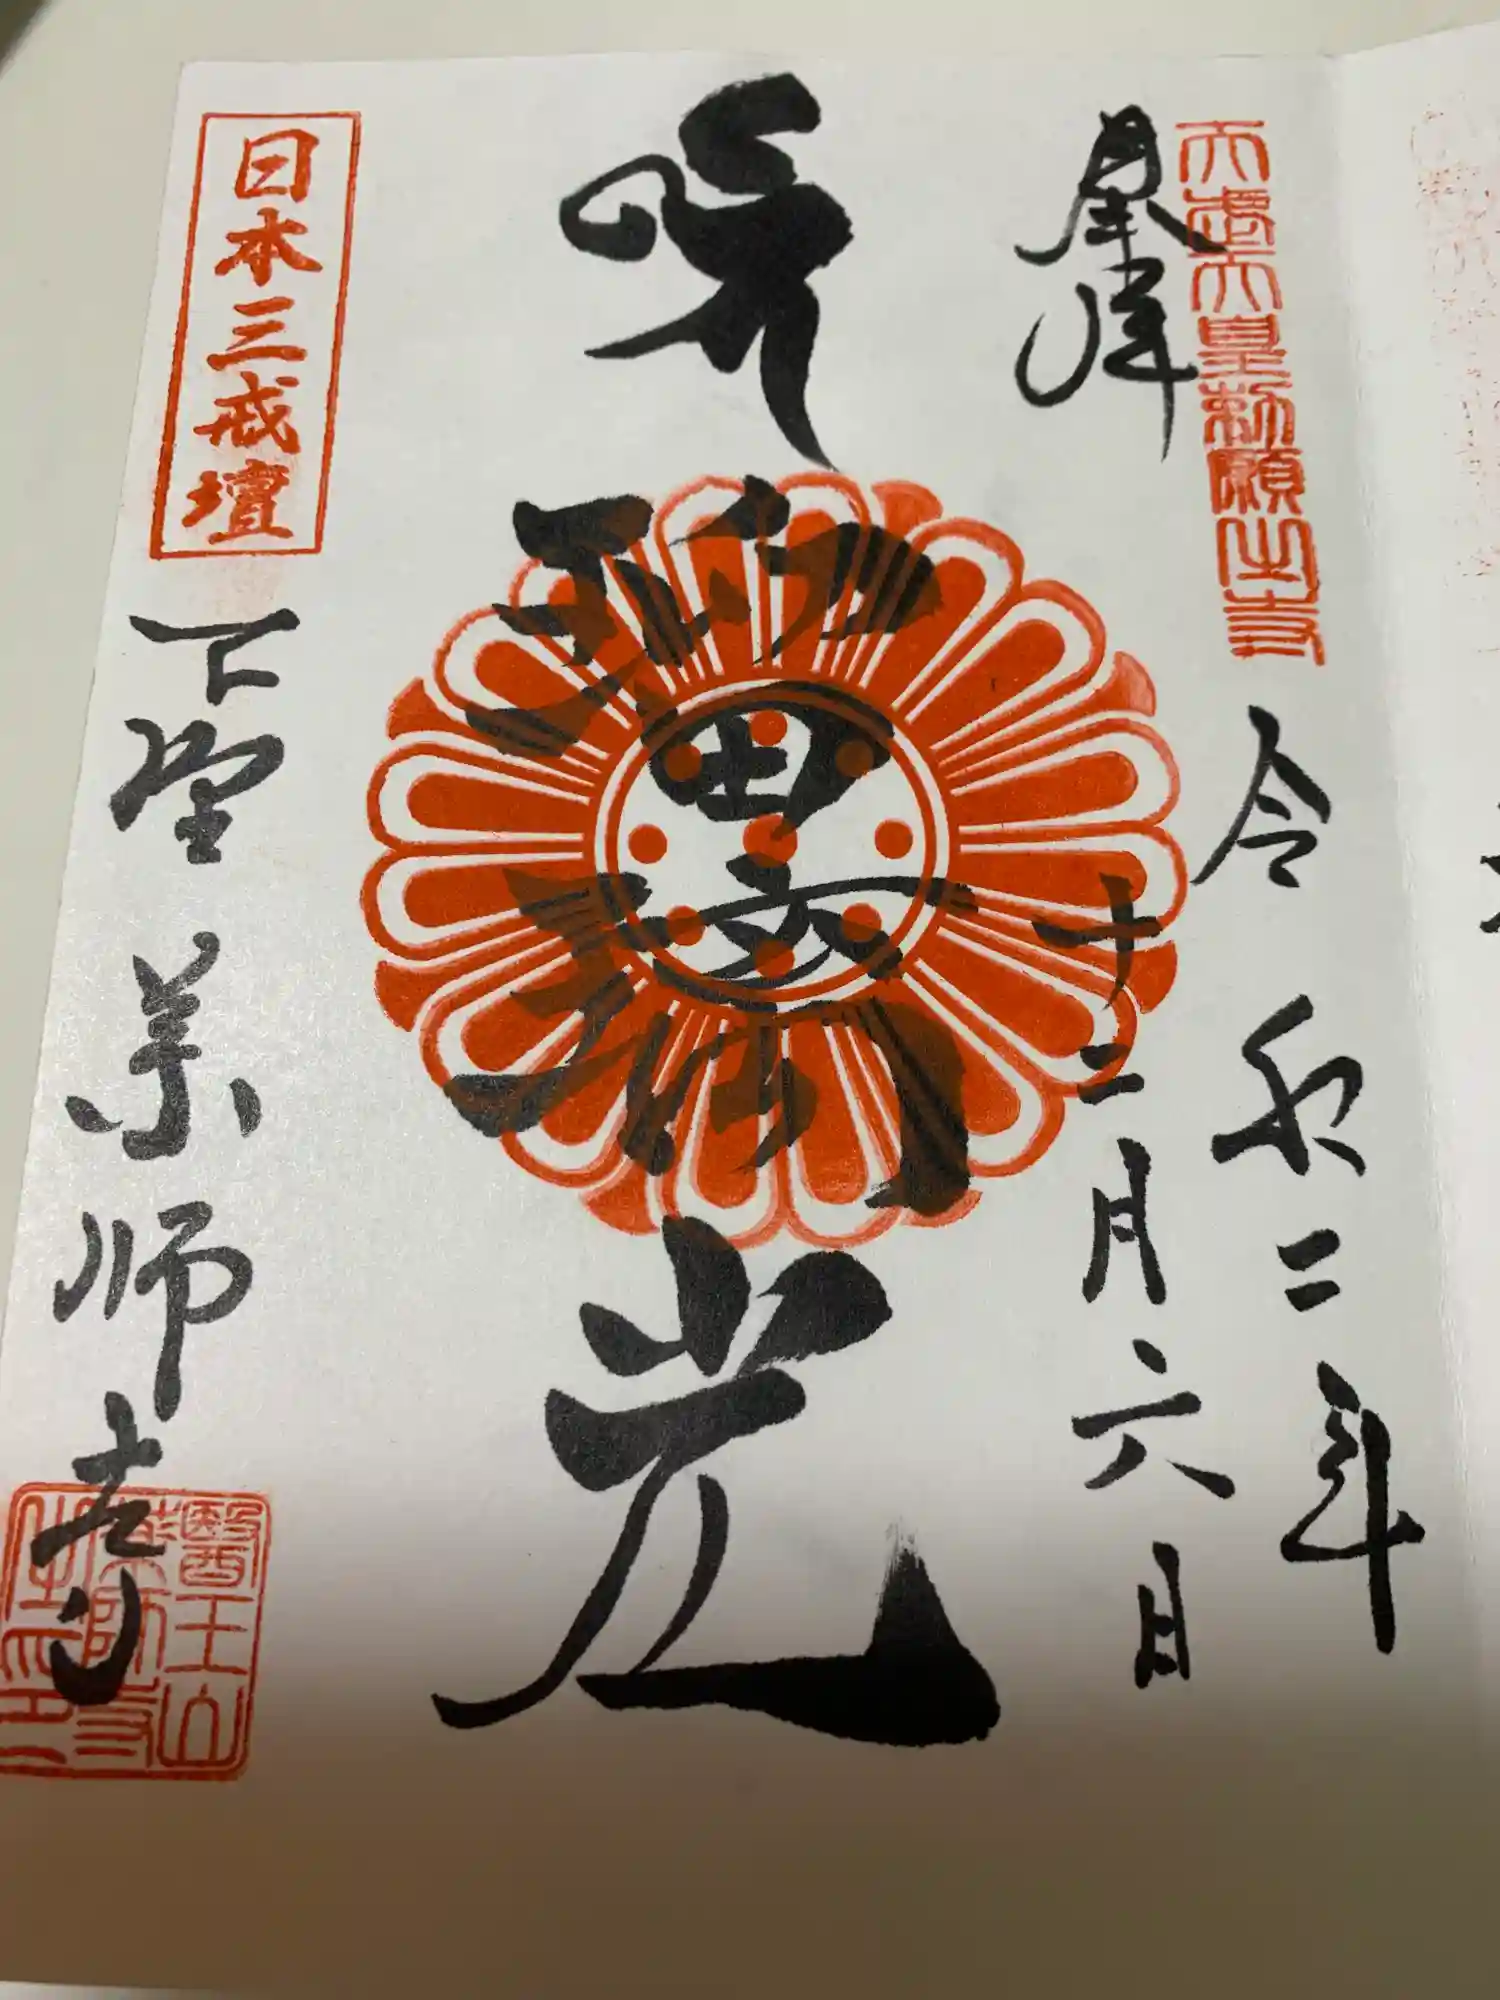 天武天皇勅願之寺
奉拝
令和二年
十二月六日
瑠璃光
日本三戒壇
下野薬師寺
醫王山
薬師寺
之印